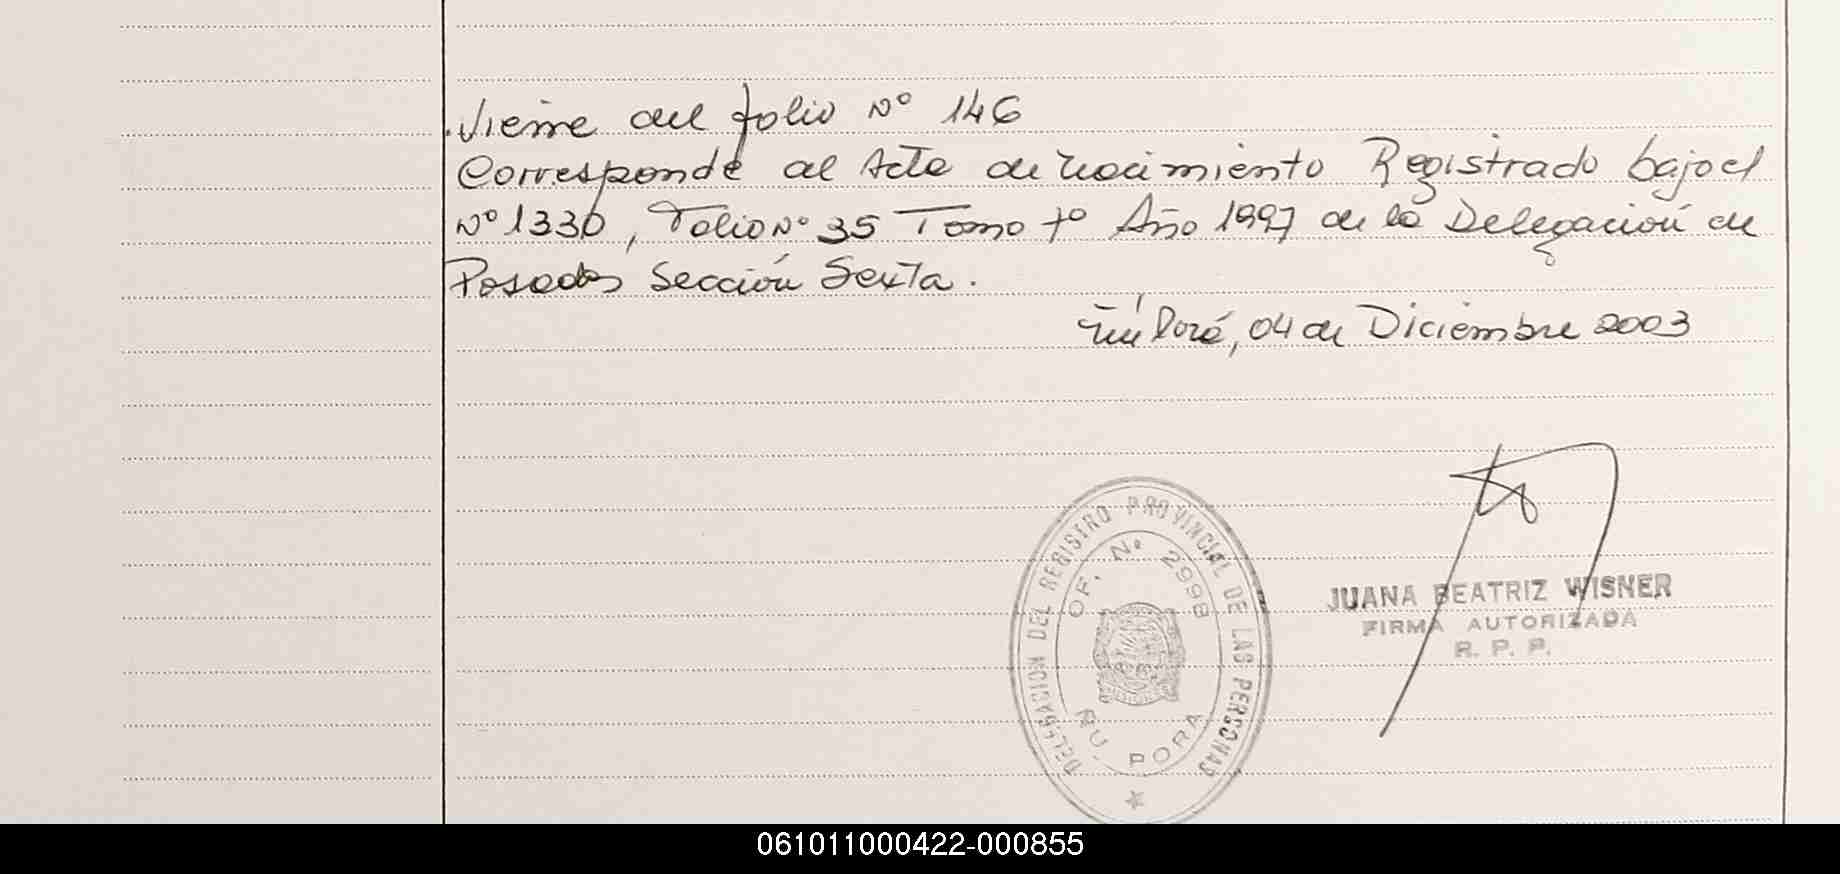 Viene del folio Nº 146
Corresponde al Acta de Nacimiento Registrado bajo el
Nº 1330, Folio Nº 35 Tomo 7º Año 1997 de la Delegación de
Posadas Sección Sexta.
Ñú Porá, 04 de Diciembre 2003
DELEGACION DEL REGISTRO PROVINCIAL DE LAS PERSONAS
OF. Nº 2998
ÑU. PORA
JUANA BEATRIZ WISNER
FIRMA AUTORIZADA
R. P. P.
061011000422-000855